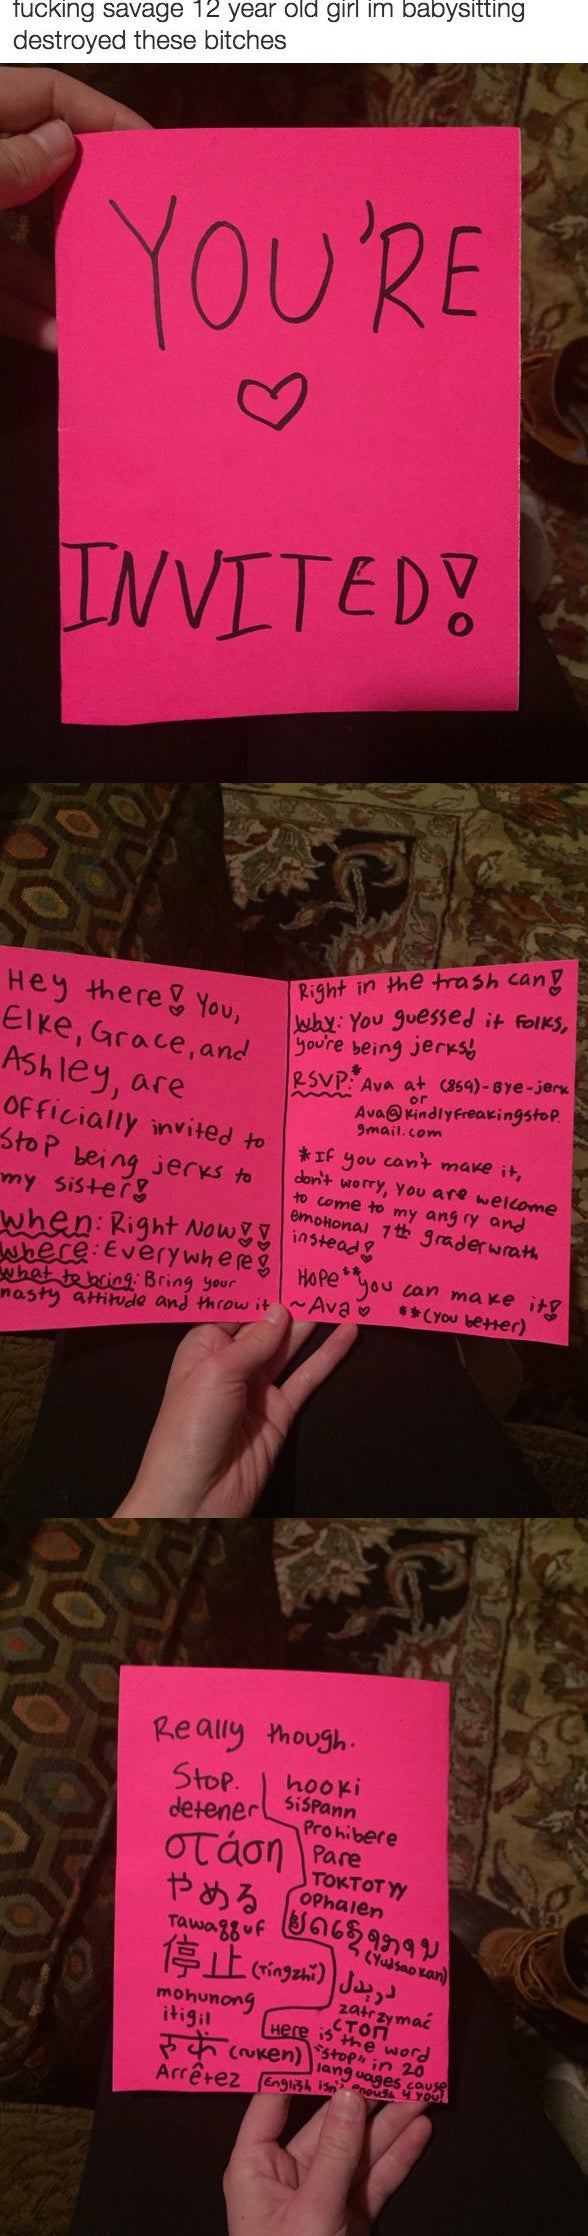 fucking savage 12 year old girl im babysitting
destroyed these bitches
YOU'RE
INVITED!
Hey there! You,
Elke, Grace, and
Ashley, are
officially invited to
stop being jerks to
my sister!
When: Right Now!!
Where: Everywhere!
What to bring: Bring your
nasty attitude and throw it
Right in the trash can!
Why: You guessed it folks,
you're being jerks!
RSVP:* Ava at (859)-Bye-jerk
or
Ava@kindlyfreakingstop.
gmail.com
*If you can't make it,
don't worry, you are welcome
to come to my angry and
emotional 7th grader wrath
instead!
Hope** you can make it!
~Ava ♡ **(you better)
Really though.
Stop.
detener
στάση
やめる
Tawaqquf
停止 (Tíngzhǐ)
mohunong
itigil
(ruken)
Arrêtez
hooki
sispann
Prohibere
Pare
TOKTOTYY
ophalen
(Yudsaokan)
zatrzymać
стоп
Here is the word
"stop" in 20
languages cause
English isn't enough 4 you!